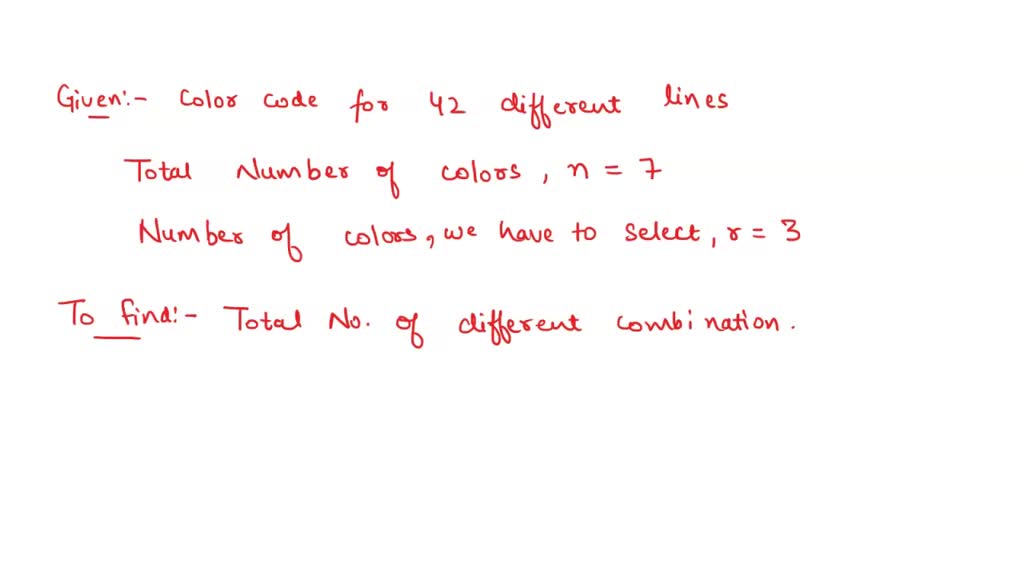 Given:- Color code for 42 different lines
Total Number of colors, n = 7
Number of colors, we have to select, r = 3
To find:- Total No. of different combination.